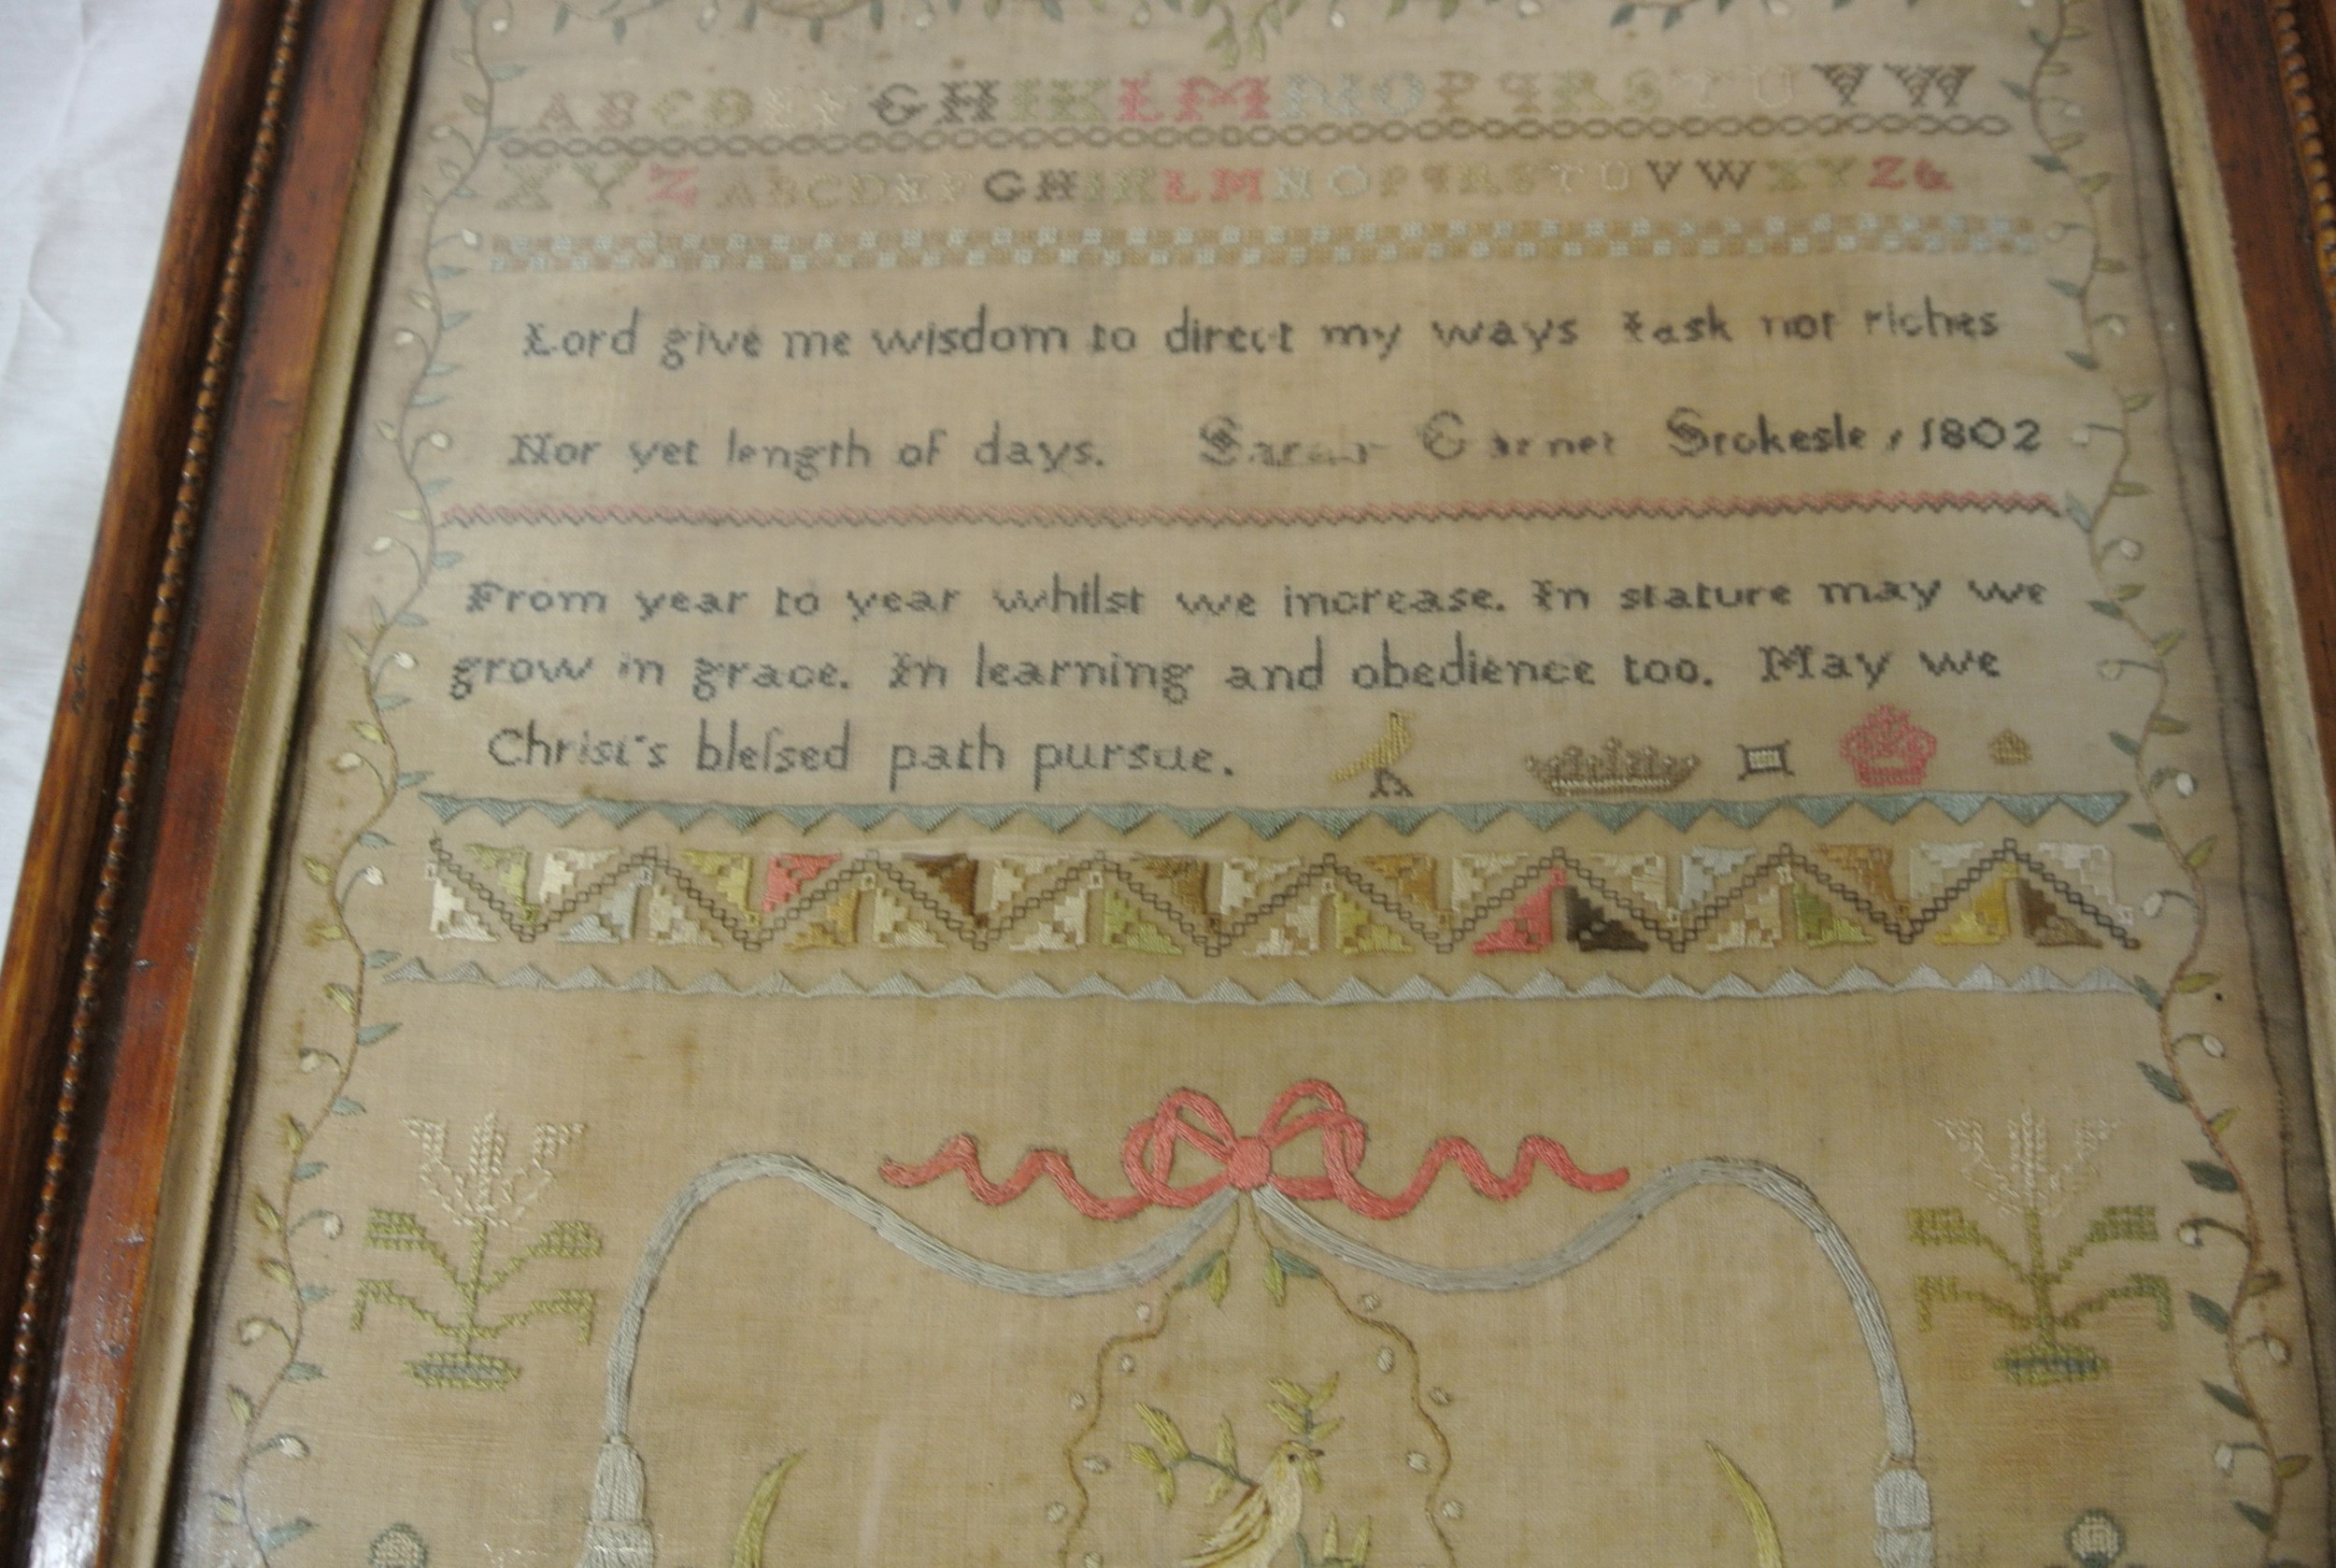 A B C D E F G H I K L M N O P q R S T U V W
X Y Z A B C D E F G H I K L M N O P q R S T U V W X Y Z &
Lord give me wisdom to direct my ways I ask not riches
Nor yet length of days. Sarah Garnet Stokesley 1802
From year to year whilst we increase. In stature may we
grow in grace. In learning and obedience too. May we
Christ's bleſsed path pursue.